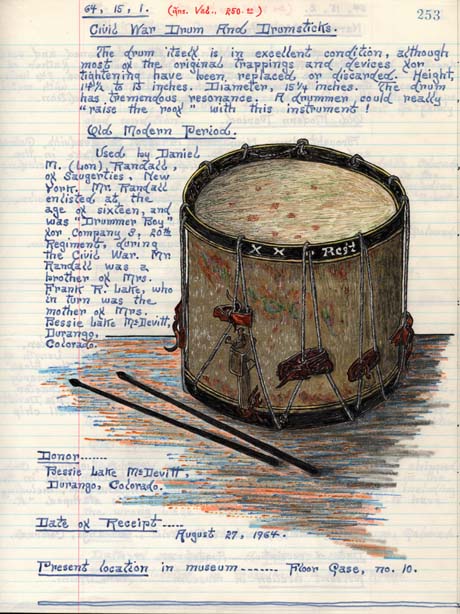 64, 15, 1. (Ins. Val., 250.00)
253
Civil War Drum And Drumsticks.
The drum itself is, in excellent condition, although
most of the original trappings and devices for
tightening have been replaced or discarded. Height,
14¾ to 15 inches. Diameter, 15¼ inches. The drum
has tremendous resonance. A drummer could really
"raise the roof" with this instrument!
Old Modern Period.
Used by Daniel
M. (Lon), Randall,
of Saugerties, New
York. Mr. Randall
enlisted, at the
age of sixteen, and
was "Drummer Boy"
for Company
20th
Regiment, during
the Civil War. Mr.
Randall was a
brother of Mrs.
Frank R. Lake, who
in turn was the
mother of Mrs.
Bessie Lake McDevitt,
Durango,
Colorado.
X X Reg't
Donor......
Bessie Lake McDevitt,
Durango, Colorado.
Date of Receipt-----
August 27, 1964.
Present location in museum------- Floor Case, no. 10.